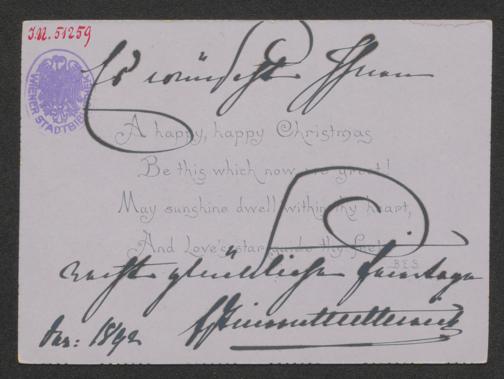 I.N. 51259
WIENER STADTBIBLIOTHEK
Es wünscht Ihnen
A happy, happy Christmas
Be this which now we greet!
May sunshine dwell within thy heart,
And Love's star guide thy feet
B.E.S.
recht glückliche Feiertage
1892